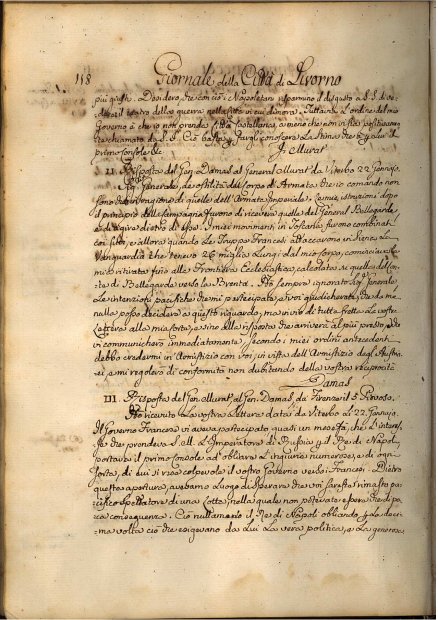 118 Giornale della Città di Livorno
più giusti. Desidero, che con ciò i Napoletani risparmino il disgusto a S. S. di ve-
dere il teatro della guerra nella Città in cui dimora. Tuttavia l'ordine del mio
Governo è che io protegga
primo Console &c. G. Murat
II. Risposta del Gen. Damas al General Murat da Viterbo 22 Gennajo.
Generale, le ostilità del Corpo di Armata che io comando non
sono che di quelle dell'Armata Imperiale. Le mie istruzioni dopo
il principio della Campagna furono di ricevere quelle del General Bellegarde,
e di agire dietro di esse. I miei movimenti in Toscana furono combinati
così, e allora quando le Truppe Francesi attaccarono in Siena la
Vanguardia che teneva 26 miglia lungi dal mio Corpo, cominciava la
mia ritirata fino alle Frontiere Ecclesiastiche, calcolata su quella del Con-
te di Bellegarde verso la Brenta. Ho sempre ignorato, Sig. Generale,
le intenzioni pacifiche che mi partecipate, e voi giudicherete, che da me
nulla posso decidere a questo riguardo, ma invio di tutta fretta la vostra
Lettera alla mia Corte, e sino alla risposta che arriverà al più presto, e che
vi comunicherò immediatamente, secondo i miei ordini antecedenti
debbo credermi in Armistizio con voi, in vista dell'Armistizio degli Austria-
ci e mi regolerò di conformità non dubitando della vostra reciprocità
Damas
III. Risposta del Gen. Murat al Gen. Damas, da Firenze il 5 Piovoso.
Ho ricevuto la vostra Lettera data da Viterbo li 22. Gennajo.
Il Governo Francese vi aveva partecipato quasi un mese fà, che l'interes-
se che prendeva S. M. l'Imperatore di Russia pel Re di Napoli,
portava il primo Console ad obliare l'ingiurie numerose, e di ogni
sorte, di cui si rese colpevole il vostro Governo verso i Francesi. Dietro
questa apertura, avevamo luogo di sperare che voi sareste rimasto pa-
cifico spettatore di una Lotta, nella quale non potevate essere di ve-
runa conseguenza. Ciò nullameno il Re di Napoli obliando per la deci-
ma volta ciò che esigevano da Lui la vera politica, e la generosa